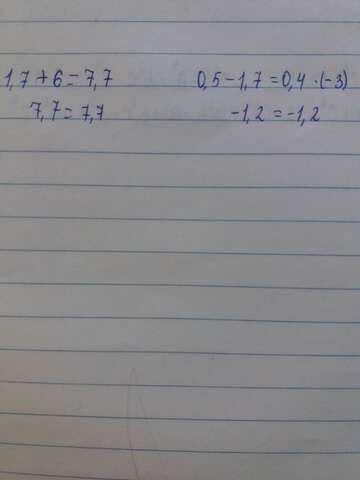 1,7+6=7,7 0,5-1,7=0,4·(-3)
7,7=7,7 -1,2=-1,2